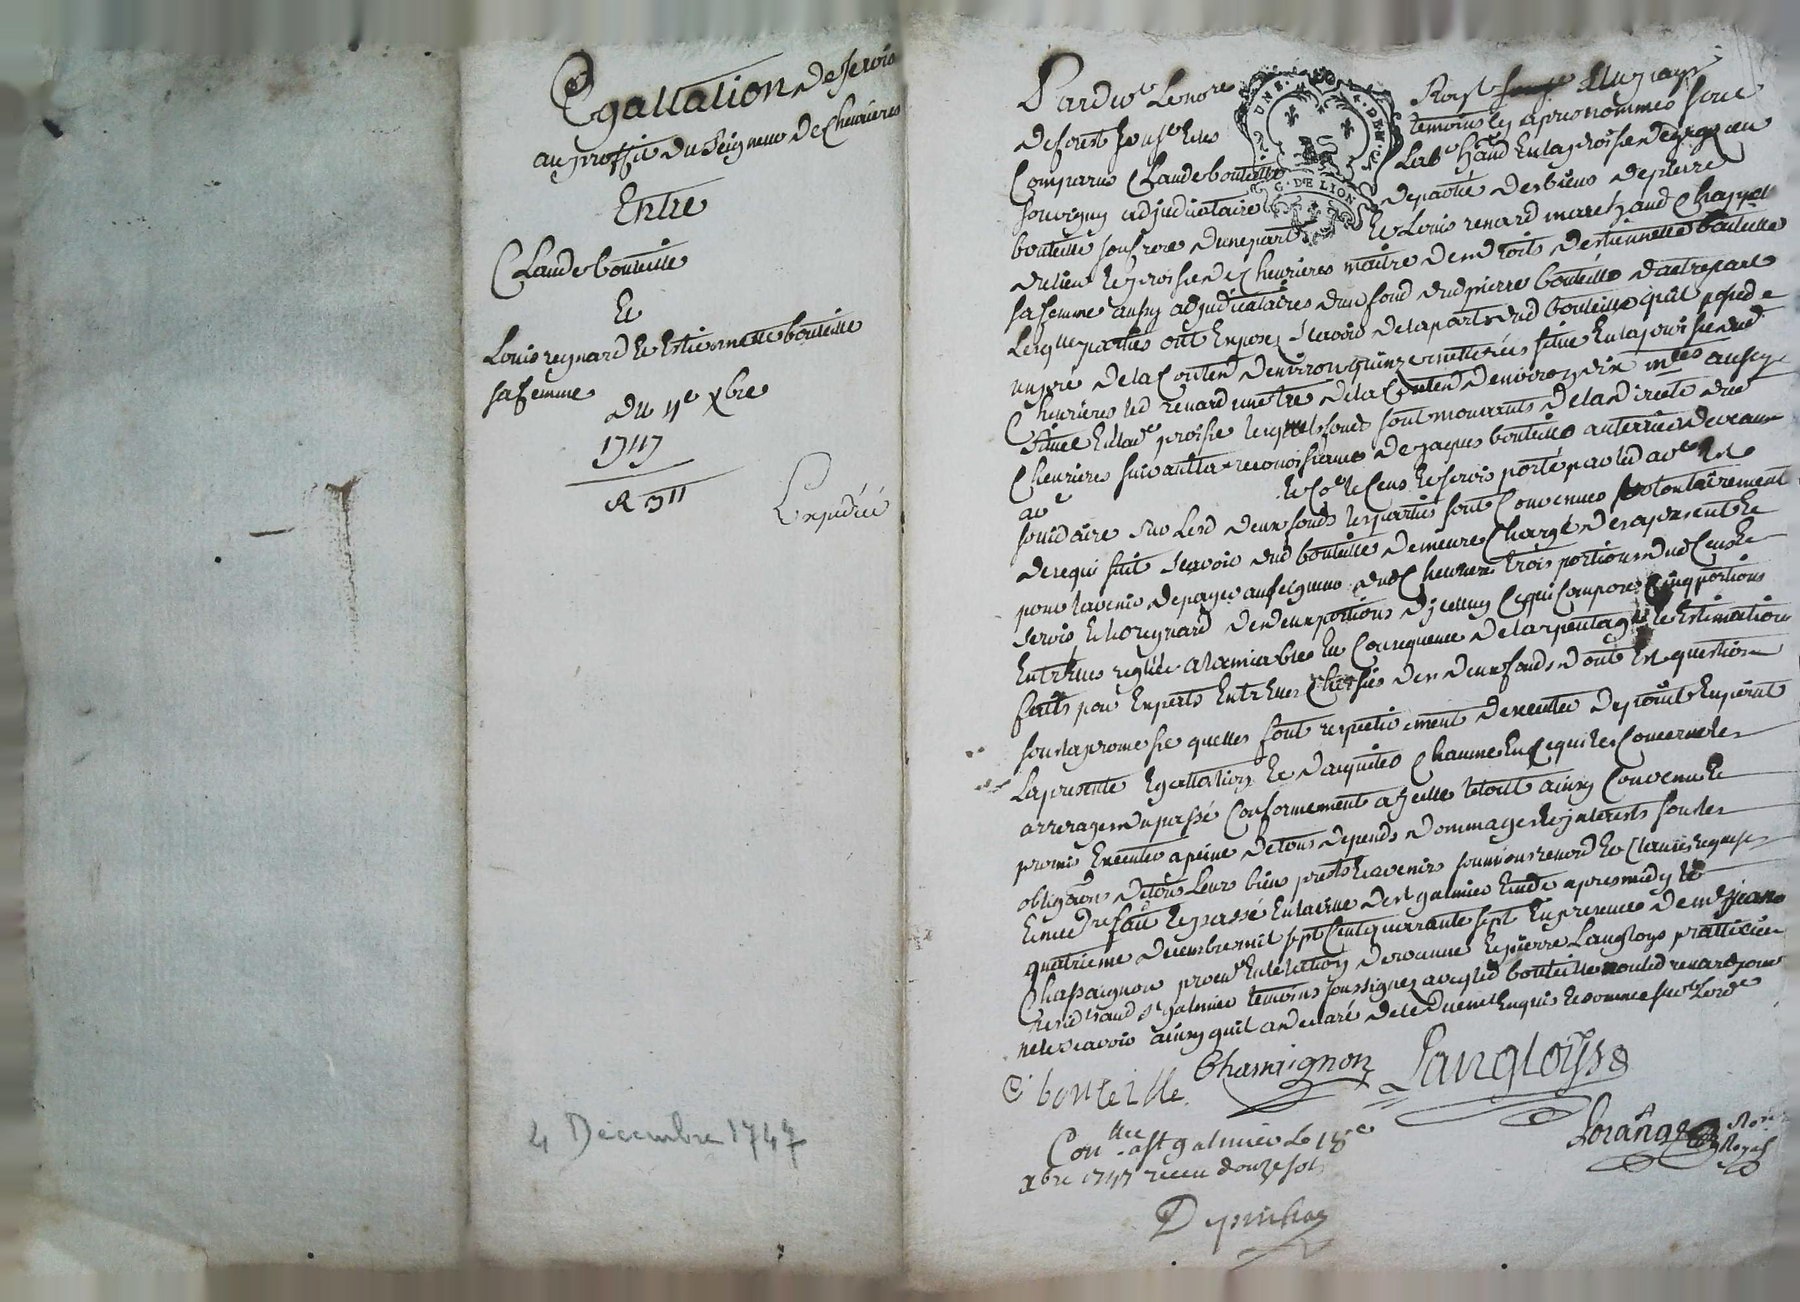 Egallation de servis
au proffit du Seigneur de Chevrieres
Entre
Claude bouteille
Et
Louis reynard et Estiennette bouteille
sa femme
du 4e Xbre
1747
R 3ll
Expédié
4 Décembre 1747
Pardvt Le nore Royl du pays
de forest soussé et les temoins cy apres nommés sont
Comparus Claude bouteille Labr hant en la proisse de
souvigny adjudicataire de partie des biens de pierre
bouteille son frere d'une part Et Louis renard marchand
du lieu et proisse de Chevrieres maitre des droits d'estiennette bouteille
sa femme aussy adjudicataires du fond dud pierre bouteille d'autre part
Lesqlles parties ont Exposé sçavoir de la part dud bouteille qu'il possede
une tre de la Conten d'environ quinze metterées situé En la proisse dud
Chevrieres led renard une tre de la Conten d'environ dix mées aussy
située En lade proisse lesquels fonds sont mouvants de la directe dud
Chevrieres suivant la reconoissance de jaques bouteille anterieur
Et Co Le Cens et servis porté par led acte Est
solidaire sur lesd deux fonds les parties sont Convenues volontairement
de ce qui suit sçavoir led bouteille demeure Chargé des a present Et
pour l'avenir de payer au seigneur dud Chevrieres trois portions dud Cens Et
servis Et led reynard des deux portions d'jcelluy Ce qui Compose Cinq portions
Entr'Eux reglées a lamiable En Consequence de l'arpentage et Estimation
faits par Experts Entr'Eux Choisis des deux fonds dont Est question
sous la promesse quelles font respectivement d'executer de point En point
La presente Egallation Et d'acquitter Chacune En Ce qui les Concerne les
arrerages du passé Conformement a jcelle le tout ainsy Convenu Et
promis Executer a peine de tous depends dommages et jnterests sous les
obligaons de tous Leurs biens pnts et avenirs soumions renond Et Clauses requises
fait Et passé En la ville de St galmier Etude apres midy le
quatrieme decembre mil sept Cent quarante sept En presence de me jean
Chassaignon procur En lelection de roanne Et pierre Langlois pratticien
residt aud St galmier temoins soussignez avec led bouteille non led renard pour
ne le scavoir ainsy quil a declaré de ce duement Enquis Et sommé suivt Lorde
C bouteille Chassaignon Langlois
Corange Nore Royal
Conlle a St galmier Le 18e
xbre 1747 receu douze sols
Depinhac